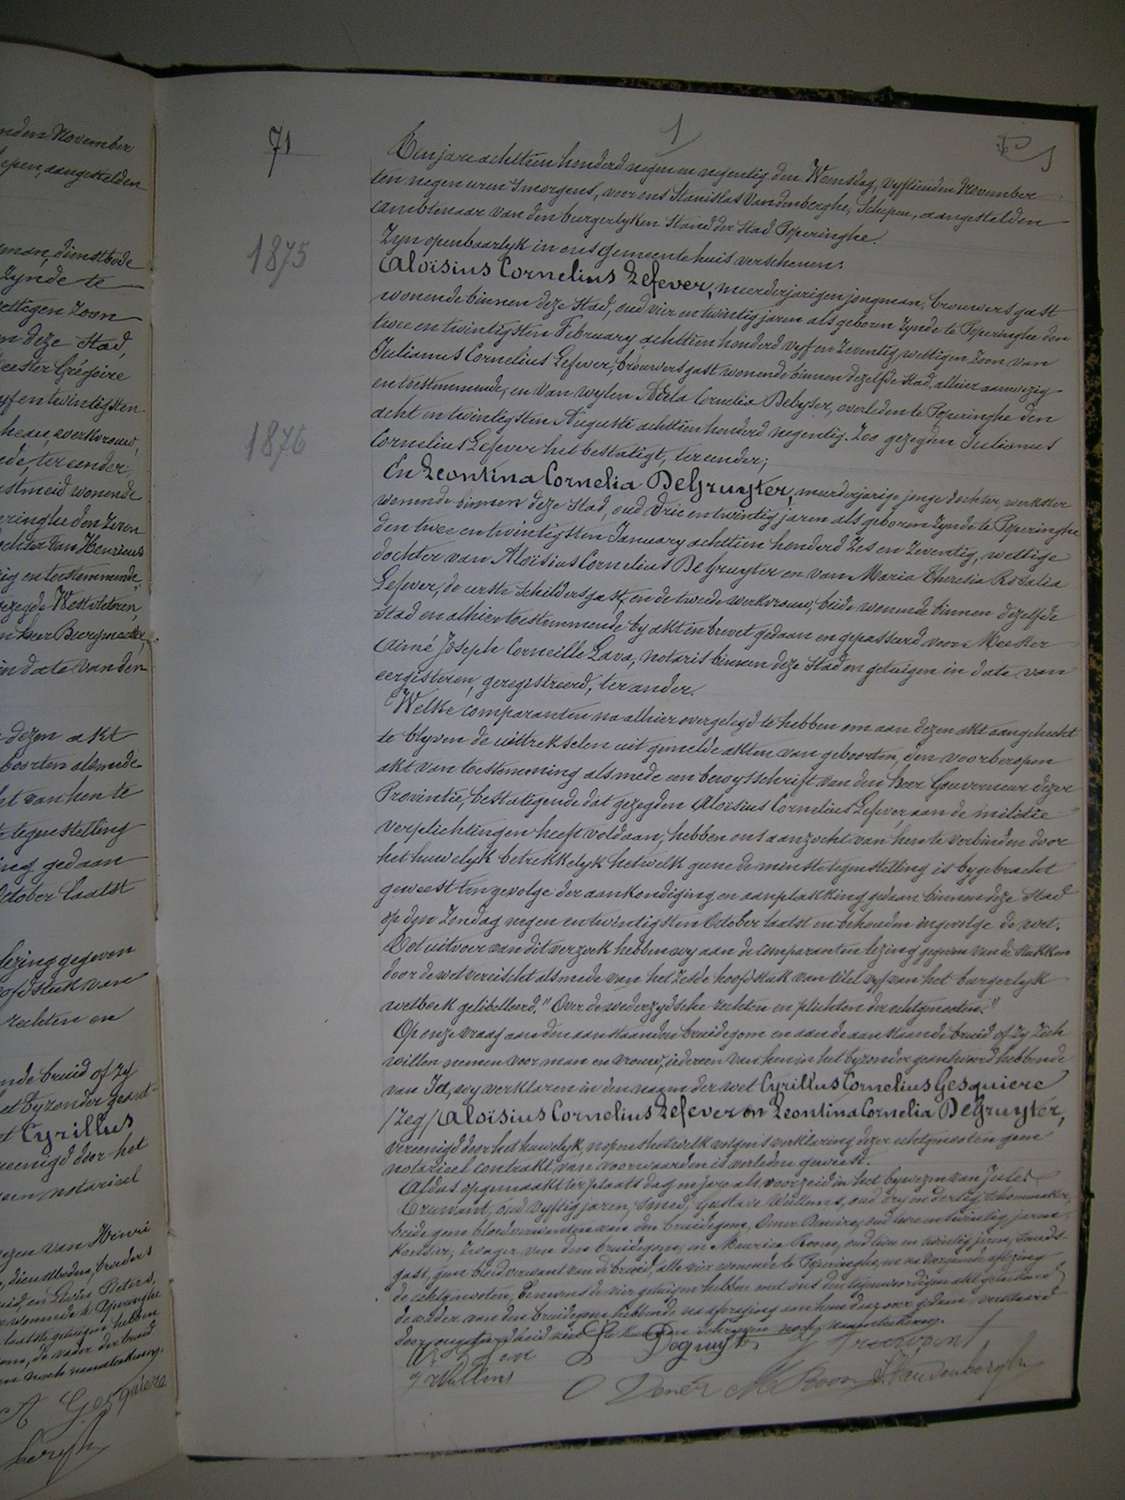 nden November
epen, aangestelden
man, dienstbode
zynde te
wettigen Zoon
n deze Stad,
eester Grégoire
yf en twintigsten
werkvrouw,
ede ter eender,
stmeid wonende
eringhe den Zeven
van Henricus
ig en toestemmende
gezegde
in date van den
dezen akt
boorten alsmede
ht van hen te
tegenstelling
ing gedaan
october laatst
lezing gegeven
oofdstuk van
rechten en
nde bruid of zy
et byzonder geant-
t Cyrillus
reenigd door het
een notarieel
ezen van Henri
71
1
1875
1876
Ten jare achttien honderd negen en negentig den Woensdag, vyftienden November
ten negen uren 's morgens, voor ons Stanislas Vandenberghe, Schepen, aangestelden
ambtenaar van den burgerlyken Stand der Stad Poperinghe.
Zyn openbaarlyk in ons gemeentehuis verschenen:
Aloïsius Cornelius Lefever, meerderjarigen jongman, brouwersgast
wonende binnen deze Stad, oud vier en twintig jaren als geboren zynde te Poperinghe den
twee en twintigsten February achttien honderd vyf en Zeventig, wettigen Zoon van
Julianus Cornelius Lefever, brouwersgast wonende binnen dezelfde Stad, alhier aanwezig
en toestemmende, en van wylen Adela Cornelia Debyser, overleden te Poperinghe den
acht en twintigsten Augusti achttien honderd negentig. Zoo gezegden Julianus
Cornelius Lefever het bestatigt, ter eender;
En Leontina Cornelia DeGruyter, meerderjarige jonge dochter, werkster
wonende binnen deze Stad, oud drie en twintig jaren als geboren zynde te Poperinghe
den twee en twintigsten January achttien honderd Zes en Zeventig, wettige
dochter van Aloïsius Cornelius DeGruyter en van Maria Theresia Rosalia
Lefever, de eerste Schildersgast, en de tweede werkvrouw, beide wonende binnen dezelfde
Stad en alhier toestemmende by akt in brevet gedaan en gepasseerd voor Meester
Aimé Joseph Corneille Lava, notaris binnen deze Stad en getuigen in date van
eergisteren, geregistreerd, ter ander.
Welke comparanten na alhier overgelegd te hebben om aan dezen akt aangehecht
te blyven de uittrekselen uit gemelde akten van geboorten, den voorberoepen
akt van toestemming alsmede een bewysschrift van den heer Gouverneur dezer
Provintie, bestatigende dat gezegden Aloïsius Cornelius Lefever aan de militie
verplichtingen heeft voldaan, hebben ons aanzocht van hen te verbinden door
het huwelyk betrekkelyk hetwelk geene de minste tegenstelling is bygebracht
geweest ten gevolge der aankondiging en aanplakking gedaan binnen deze Stad
op den Zondag negen en twintigsten October laatst en behouden ingevolge de wet.
Tot uitvoer van dit verzoek hebben wy aan de comparanten lezing gegeven van de stukken
door de wet vereischt alsmede van het Zesde hoofdstuk van titel vyf van het burgerlyk
wetboek getitelleerd "Over de wederzydsche rechten en plichten der echtgenooten."
Op onze vraag aan den aanstaanden bruidegom en aan de aanstaande bruid of zy zich
willen nemen voor man en vrouw, iedereen van hen in het byzonder geantwoord hebbende
van Ja, wy verklaren in den naam der wet Cyrillus Cornelius Gesquiere
/zeg/ Aloïsius Cornelius Lefever en Leontina Cornelia DeGruyter,
vereenigd door het huwelyk, nopens hetwelk volgens verklaring dezer echtgenooten geen
notarieel contrakt van voorwaarden is verleden geweest.
Aldus opgemaakt ter plaats, dag en jare als voorzeid in het bywezen van Jules
oud vyftig jaren, Smed, Gustave Wullems, oud dry en dertig, schoenmaker,
beide geene bloedverwanten van den bruidegom, oud twee en twintig jaren,
van den bruidegom, en Maurice Roone, oud twee en twintig jaren,
gast, geen bloedverwant van de bruid, alle vier wonende te Poperinghe, en na voorgaande aflezing
de echtgenooten, en de vier getuigen hebben met ons den tegenwoordigen akt geteekend
de vader van den bruidegom hebbende na afvraging aan hem door ons gedaan verklaard
Degruyter
Wullems
Vandenberghe